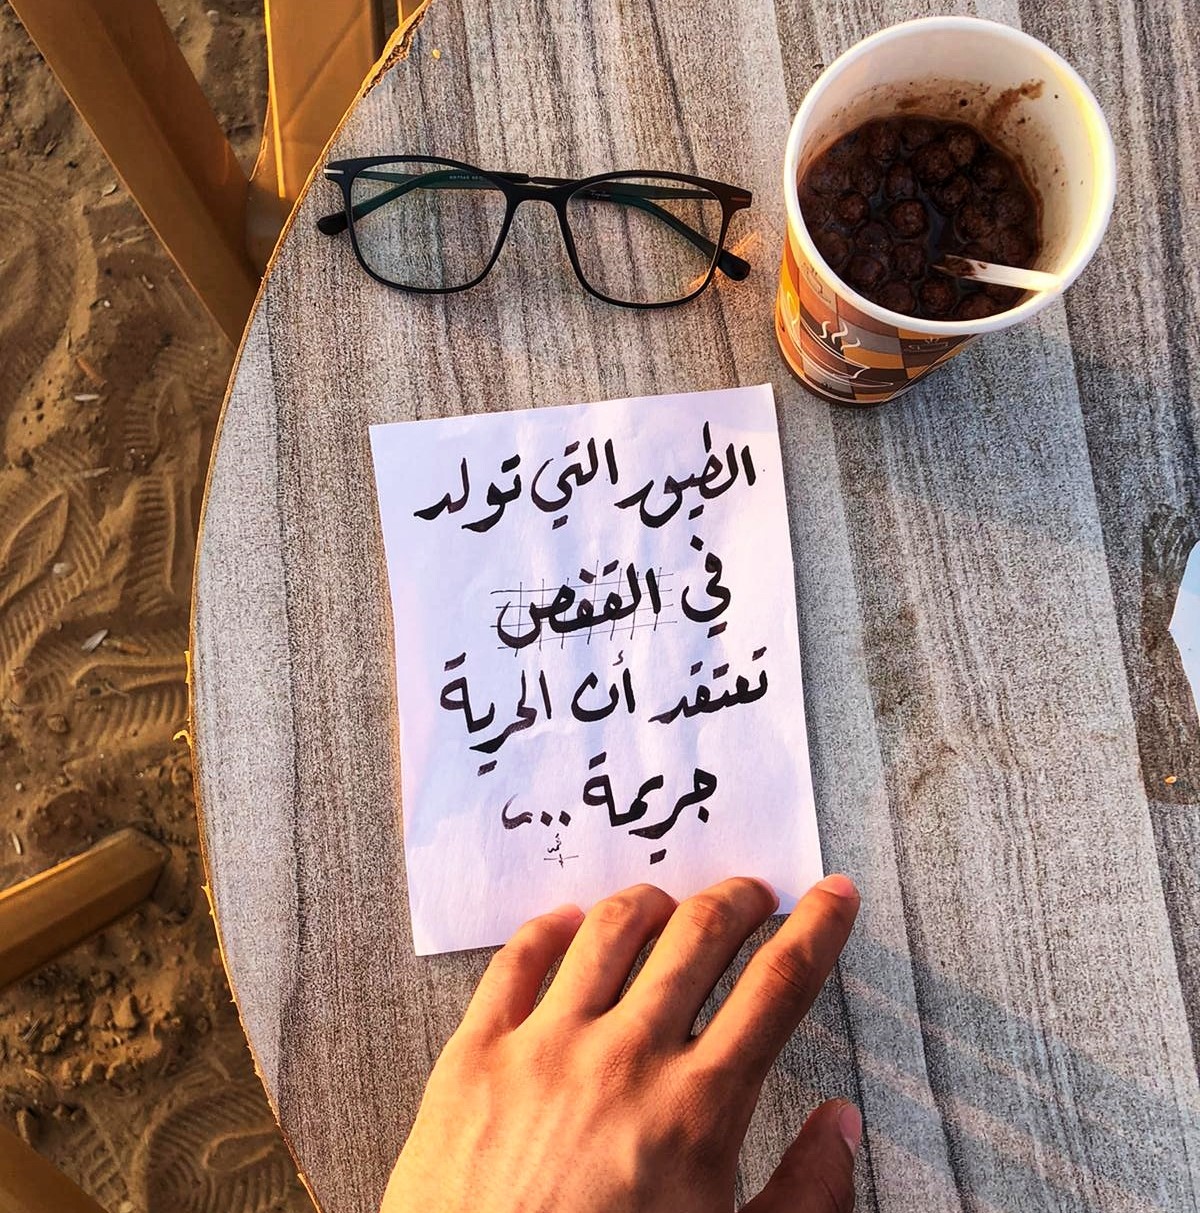 الطيور التي تولد
في القفص
تعتقد أن الحرية
جريمة ..